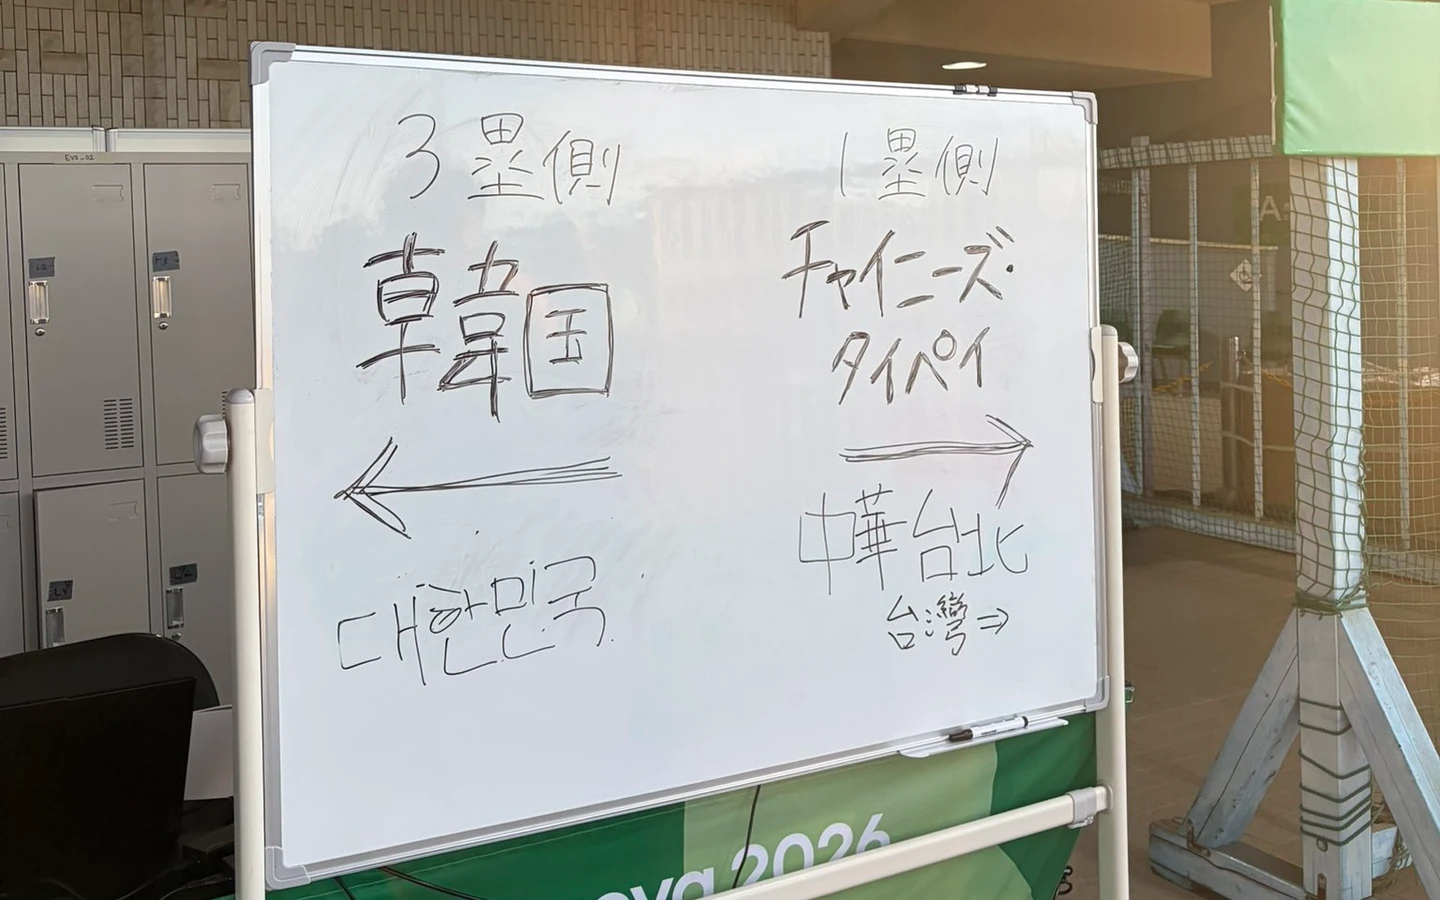 3塁側
韓国
←
대한민국
1塁側
チャイニーズ・
タイペイ
→
中華台北
台灣⇒
EVS_02
2026